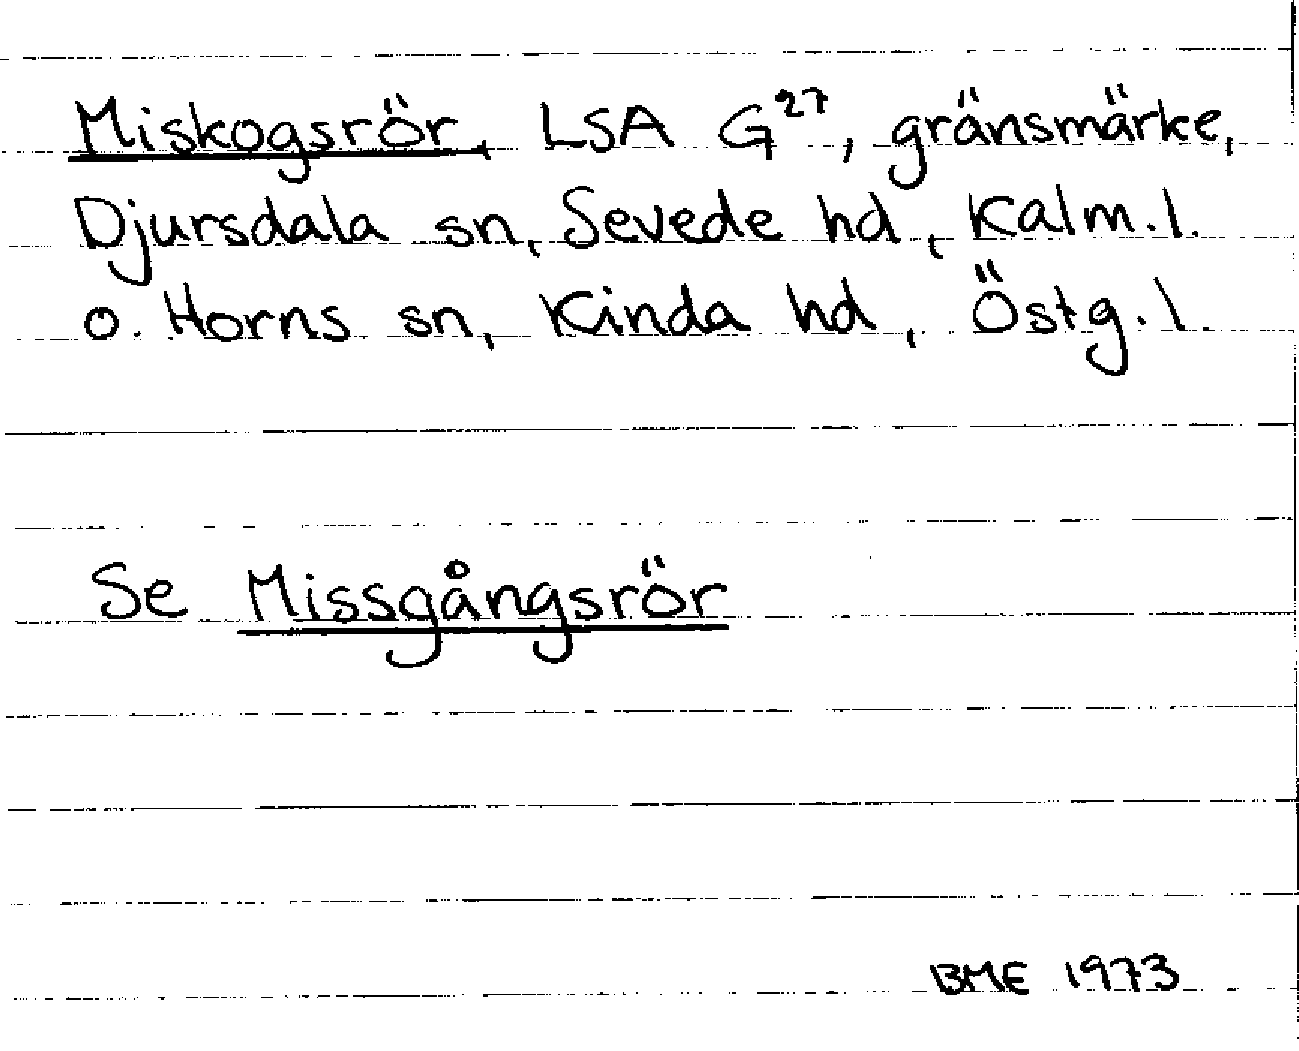 Miskogsrör, LSA G²⁷, gränsmärke,
Djursdala sn, Sevede hd, Kalm.l.
o. Horns sn, Kinda hd, Östg.l.
Se Missgångsrör
BME 1973